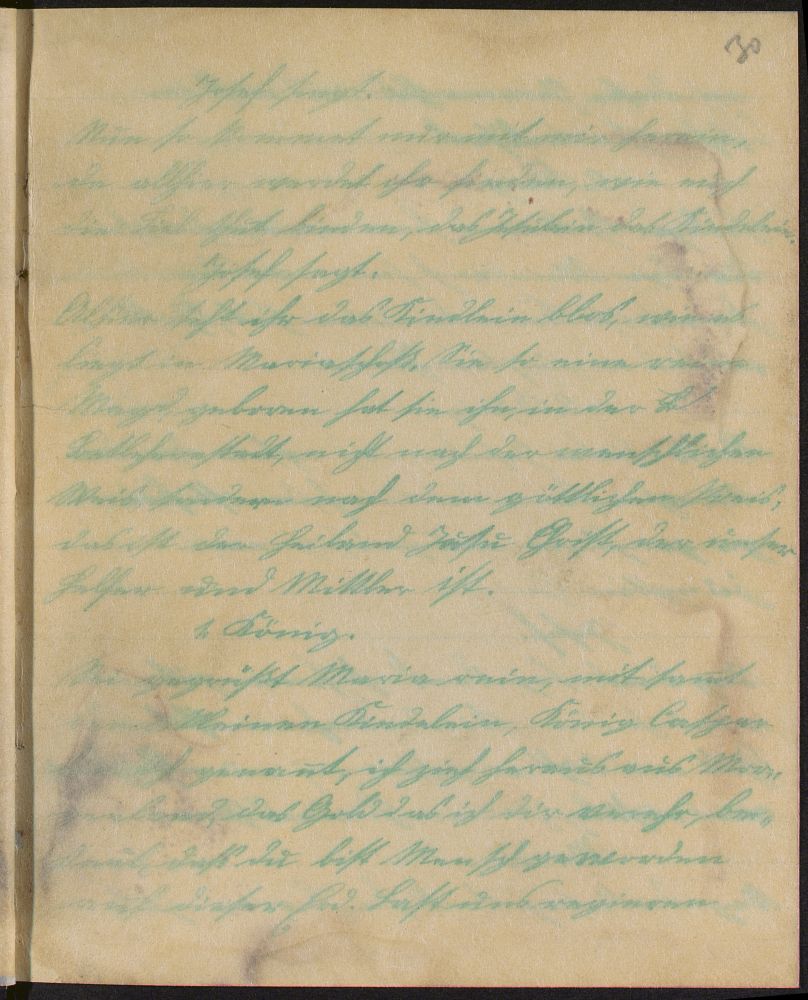 30
Josef sagt.
Nun so kommet nur mit mir herein,
da allhier werdet ihr finden, wie euch
die thut das Jesulein das Kindelein.
Josef sagt.
Alhier seht ihr das Kindlein blos, wie es
liegt in Mariaschoß. Sie so eine reine
Magd, geboren hat sie ihn, in der
Betlehemstadt, nicht nach der menschlichen
Weis, sondern nach dem göttlichen Preis,
das ist der Heiland Jesu Christ, der unser
Helfer und Mittler ist.
1. König.
Sei gegrüßt Maria rein, mit samt
Kleinen Kindelein, König Caspar
genannt, ich zieh heraus aus Mor-
genland, das Gold das ich dir verehr, be-
daß du bist Mensch geworden
auf dieser Erd. Laß uns regieren